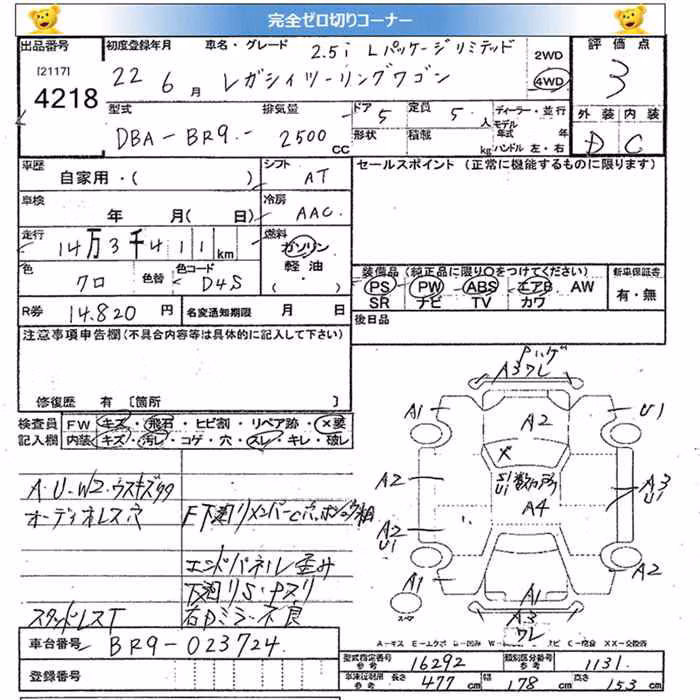 完全ゼロ切りコーナー
出品番号
[2117]
4218
初度登録年月 車名・グレード 2.5i Lパッケージリミテッド 2WD
22 6月 レガシィツーリングワゴン 4WD
評価点
3
型式 排気量 ドア 5 定員 5人 ディーラー・並行
モデル年式 年
DBA-BR9- 2500cc 形状 積載 kg ハンドル 左・右
外装 内装
D C
車歴 シフト
自家用・( ) AT
セールスポイント (正常に機能するものに限ります)
車検 冷房
年 月( 日) AAC
走行 燃料
14万3千411km ガソリン
軽油
( ・ )
色 クロ 色替 色コード D4S
装備品 (純正品に限り○をつけてください) 新車保証書
PS PW ABS エアB AW
SR ナビ TV カワ
有・無
R券 14.820円 名変通知期限 月 日
後日品
注意事項申告欄 (不具合内容等は具体的に記入して下さい)
修復歴 有 [箇所 ]
検査員記入欄
FW キズ・飛石・ヒビ割・リペア跡・×要
内装 キズ・汚レ・コゲ・穴・スレ・キレ・破レ
A・U・W2・ウスキズ
オーディオレス穴
エンドパネル歪み
下廻りS・
スタッドレスT
右Dミラー不良
A3ワレ
A1 U1
A2
X
A2 A3
U1
A4
A2
U1
A1 A2
A1
A3
ワレ
車台番号 BR9-023724
登録番号
型式指定番号 参考 16292 類別区分番号 参考 1131
長さ 477cm 幅 178cm 高さ 153cm